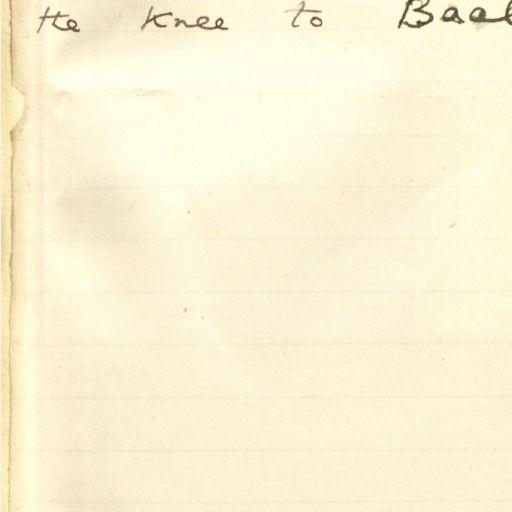 the Knee to Baal